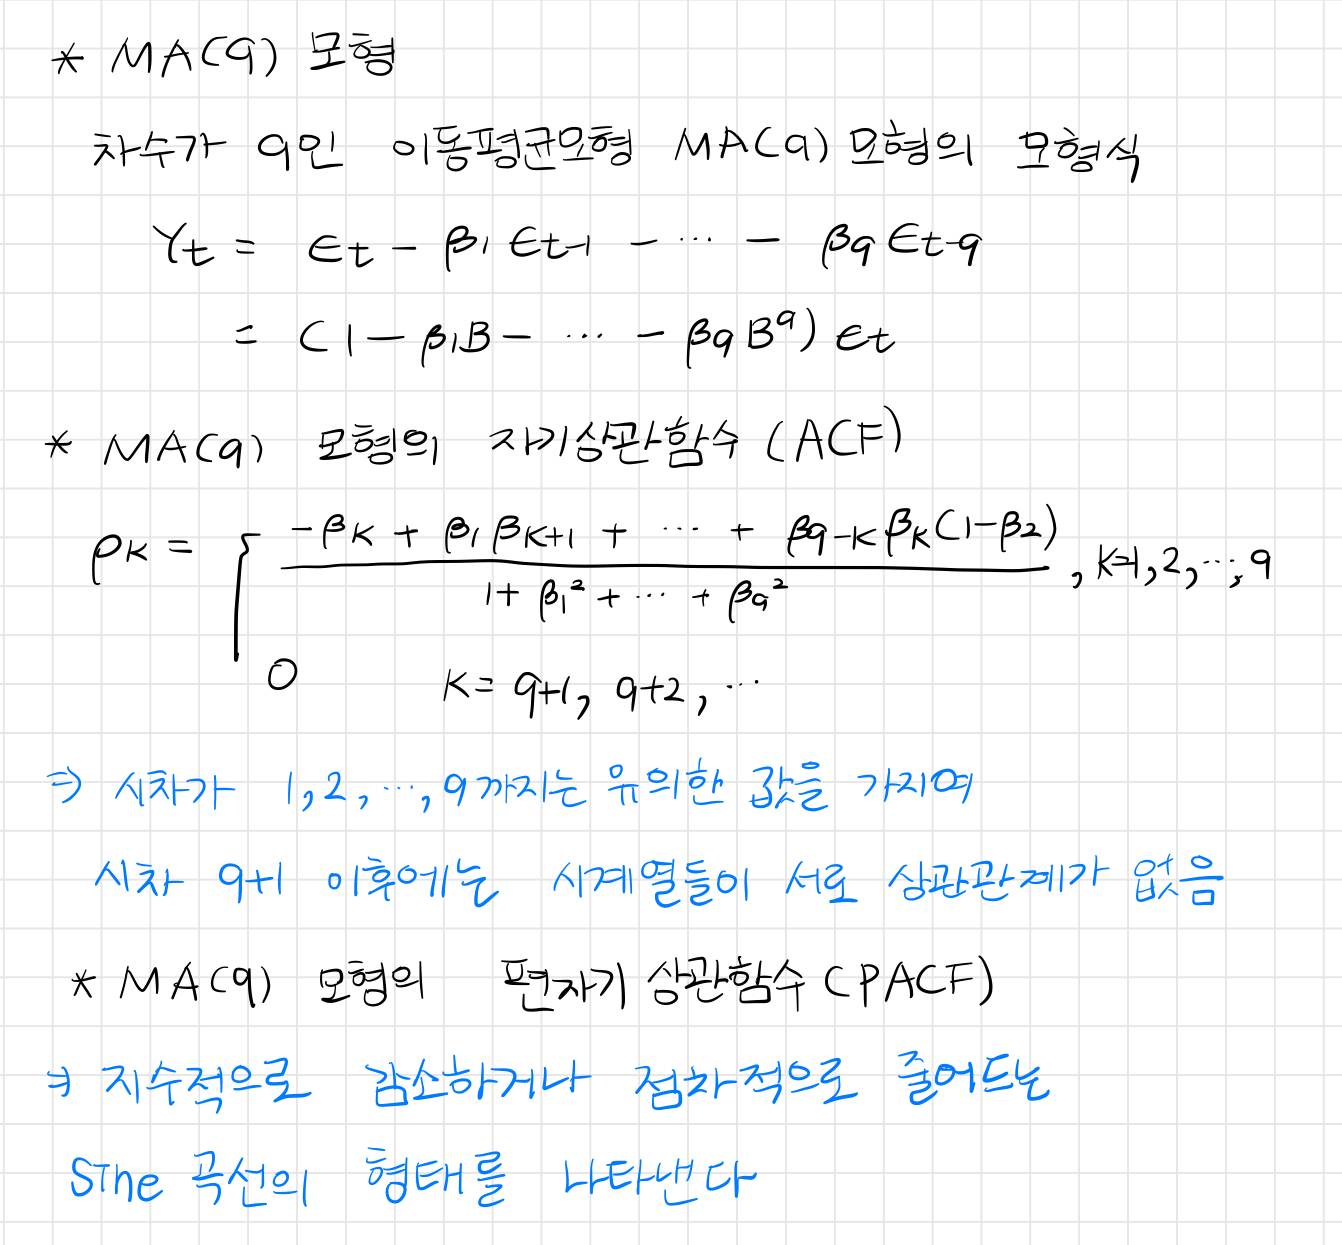 * MA(q) 모형
차수가 q인 이동평균모형 MA(q) 모형의 모형식
Yt = εt - β1 εt-1 - ... - βq εt-q
= (1 - β1B - ... - βq B^q) εt
* MA(q) 모형의 자기상관함수 (ACF)
ρk = { (-βk + β1 βk+1 + ... + βq-k βk(1-β2)) / (1 + β1² + ... + βq²) , k=1, 2, ..., q
0 k = q+1, q+2, ...
⇒ 시차가 1, 2, ..., q까지는 유의한 값을 가지며
시차 q+1 이후에는 시계열들이 서로 상관관계가 없음
* MA(q) 모형의 편자기 상관함수 (PACF)
⇒ 지수적으로 감소하거나 점차적으로 줄어드는
sine 곡선의 형태를 나타낸다